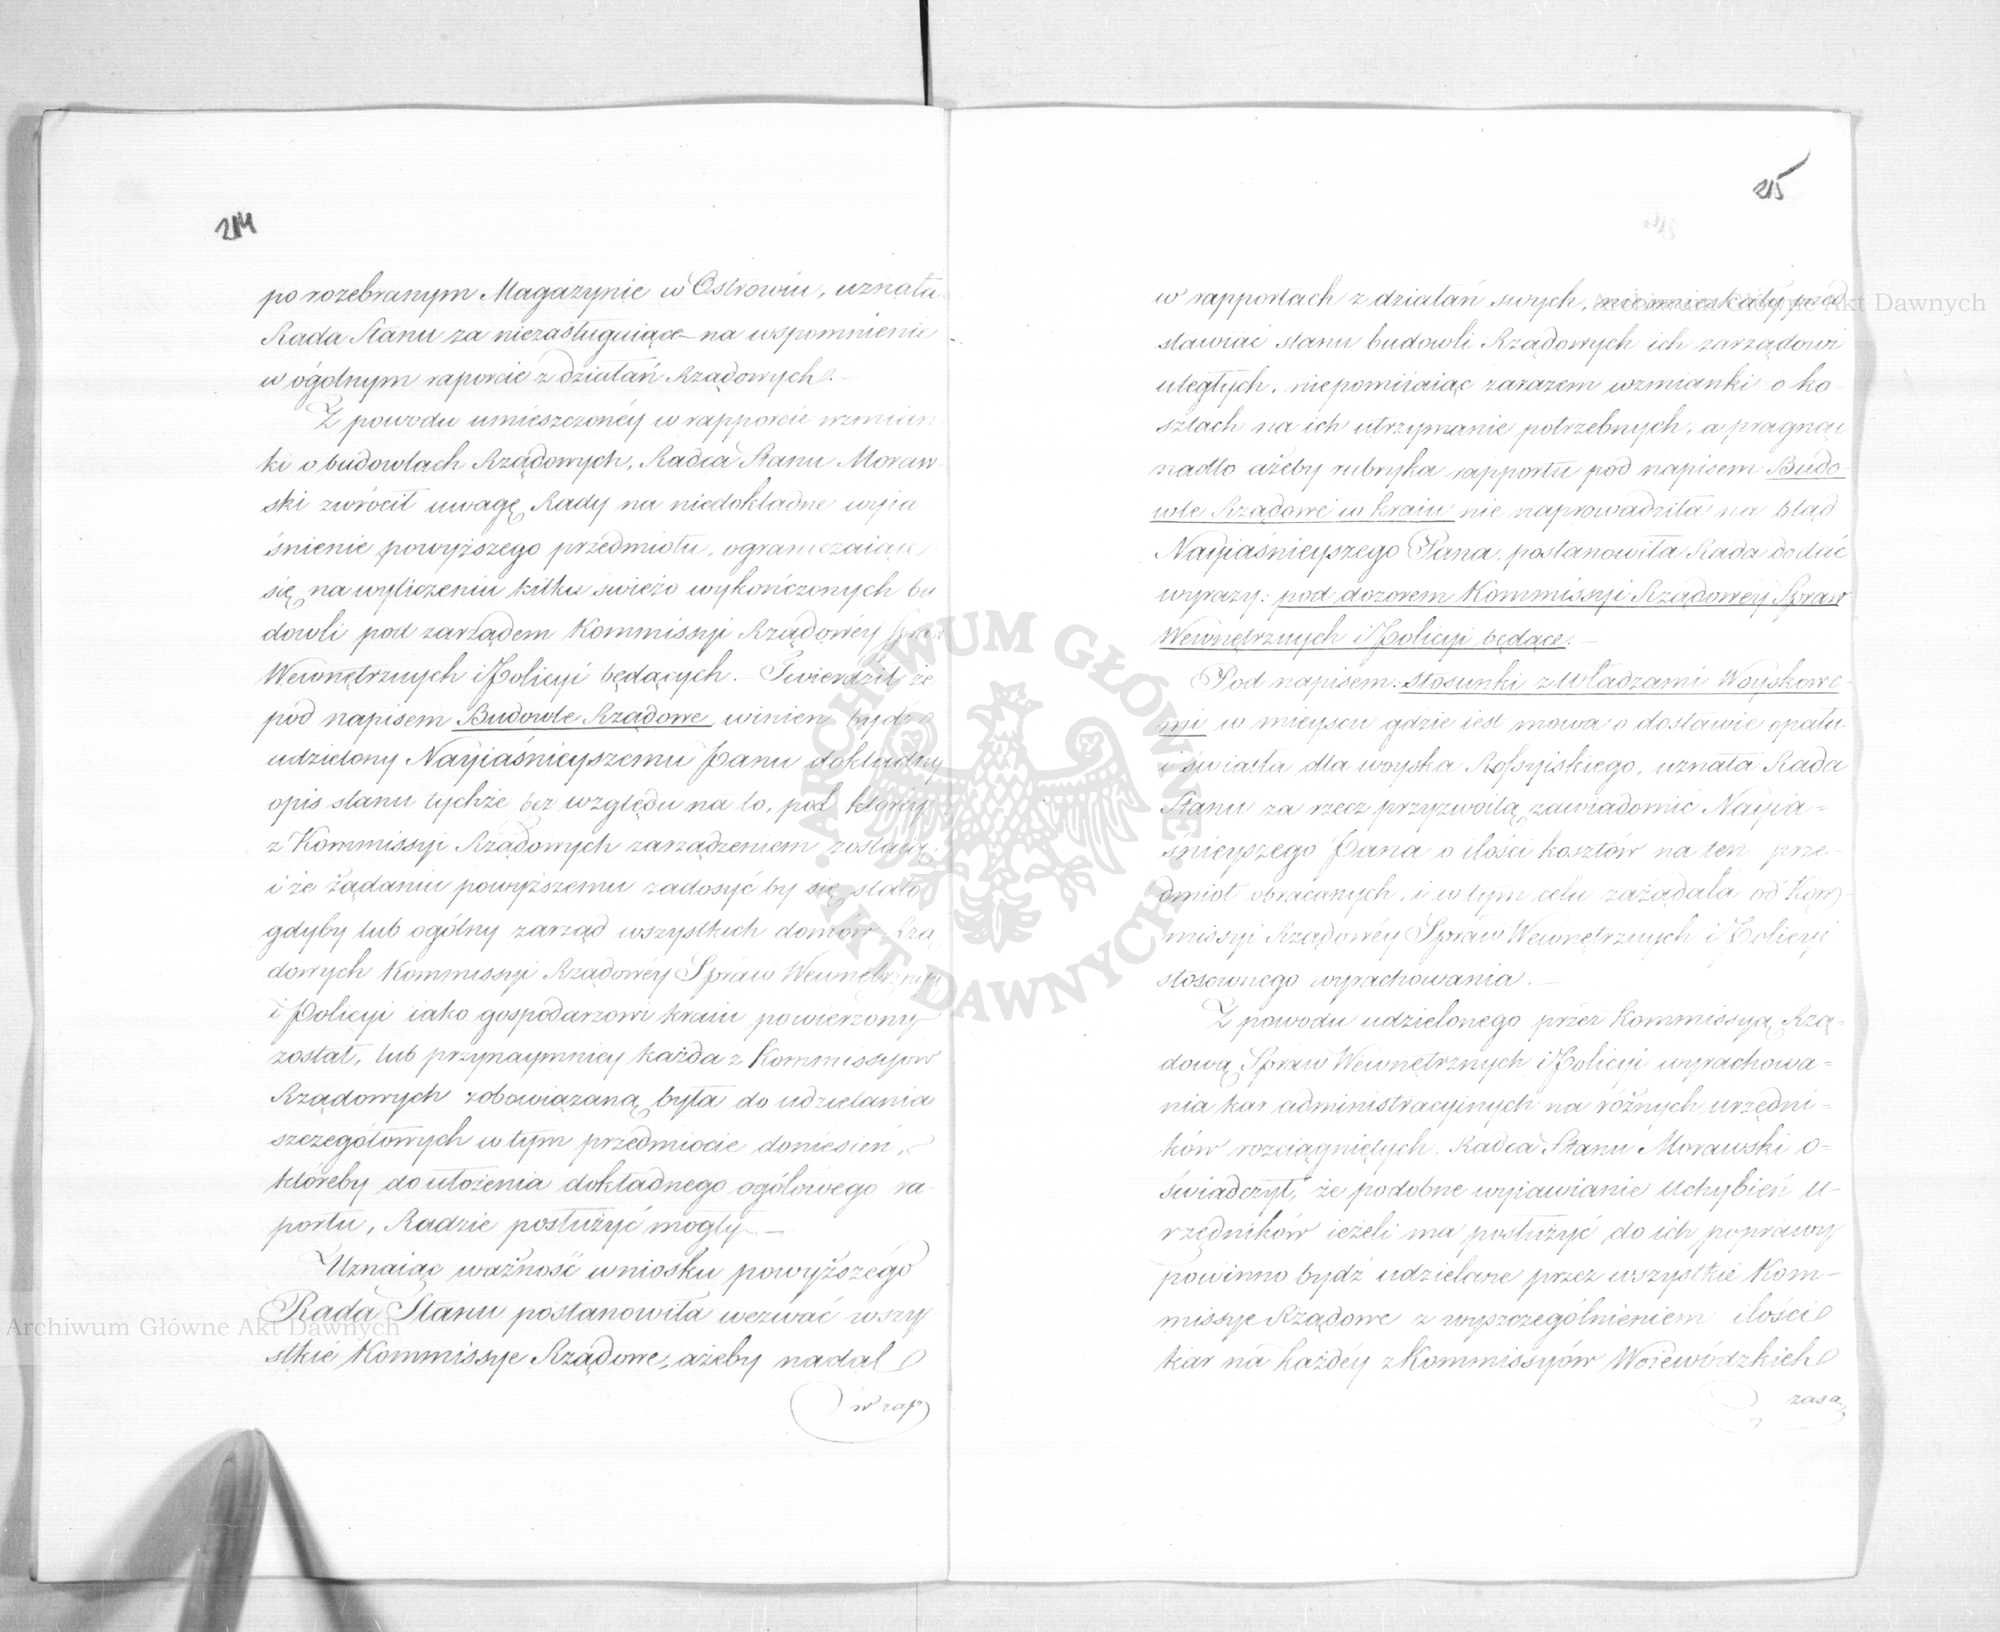 214
po rozebranym Magazynie w Ostrowiu, uznała
Rada Stanu za niezasługuiące na wspomnienie
w ogólnym raporcie z działań Rządowych. —
Z powodu umieszczonéy w rapporcie wzmian
ki o budowlach Rządowych, Radca Stanu Moraw
ski zwrócił uwagę Rady na niedokładne wyia
śnienie powyższego przedmiotu, ograniczaiące
się na wyliczeniu kilku świeżo wykończonych bu
dowli pod zarządem Kommissyi Rządowéy Spraw
Wewnętrznych i Policyi będących. — Twierdził że
pod napisem Budowle Rządowe winien bydź
udzielony Nayiaśnieyszemu Panu dokładny
opis stanu tychże bez względu na to, pod któréy
z Kommissyi Rządowych zarządzeniem zostaią;
i że żądaniu powyższemu zadosyć by się stało
gdyby lub ogólny zarząd wszystkich domów Rzą
dowych Kommissyi Rządowéy Spraw Wewnętrznych
i Policyi iako gospodarzowi kraiu powierzony
został, lub przynaymniey każda z Kommissyów
Rządowych zobowiązaną była do udzielania
szczegółowych w tym przedmiocie doniesień,
któreby do ułożenia dokładnego ogółowego ra-
portu, Radzie posłużyć mogły. —
Uznaiąc ważność wniosku powyższégo
Rada Stanu postanowiła wezwać wszy
stkie Kommissye Rządowe, ażeby nadal
w rap
215
w rapportach z działań swych, nieomieszkały przed
stawiać stanu budowli Rządowych ich zarządowi
uległych, niepomiiaiąc zarazem wzmianki o ko-
sztach na ich utrzymanie potrzebnych, a pragnąc
nadto ażeby rubryka rapportu pod napisem Budo-
wle Rządowe w kraiu nie naprowadziła na błąd
Nayiaśnieyszego Pana, postanowiła Rada dodać
wyrazy: pod dozorem Kommissyi Rządowéy Spraw
Wewnętrznych i Policyi będące. —
Pod napisem: stosunki z władzami Woyskowe-
mi w mieyscu gdzie iest mowa o dostawie opału
i światła dla woyska Rossyiskiego, uznała Rada
Stanu za rzecz przyzwoitą zawiadomić Nayia=
śnieyszego Pana o ilości kosztów na ten prze-
dmiot obracanych, i w tym celu zażądała od Kom-
missyi Rządowéy Spraw Wewnętrznych i Policyi
stosownego wyrachowania. —
Z powodu udzielonego przez Kommissyą Rzą=
dową Spraw Wewnętrznych i Policyi wyrachowa=
nia kar administracyjnych na różnych urzędni=
ków rozciągniętych, Radca Stanu Morawski o=
świadczył, że podobne wyiawianie uchybień u-
rzędników ieżeli ma posłużyć do ich poprawy
powinno bydź udzielane przez wszystkie Kom-
missye Rządowe z wyszczególnieniem ilości
kar na każdéy z Kommissyów Woiewódzkich
zasą
Archiwum Główne Akt Dawnych
Archiwum Główne Akt Dawnych
ARCHIWUM GŁÓWNE AKT DAWNYCH